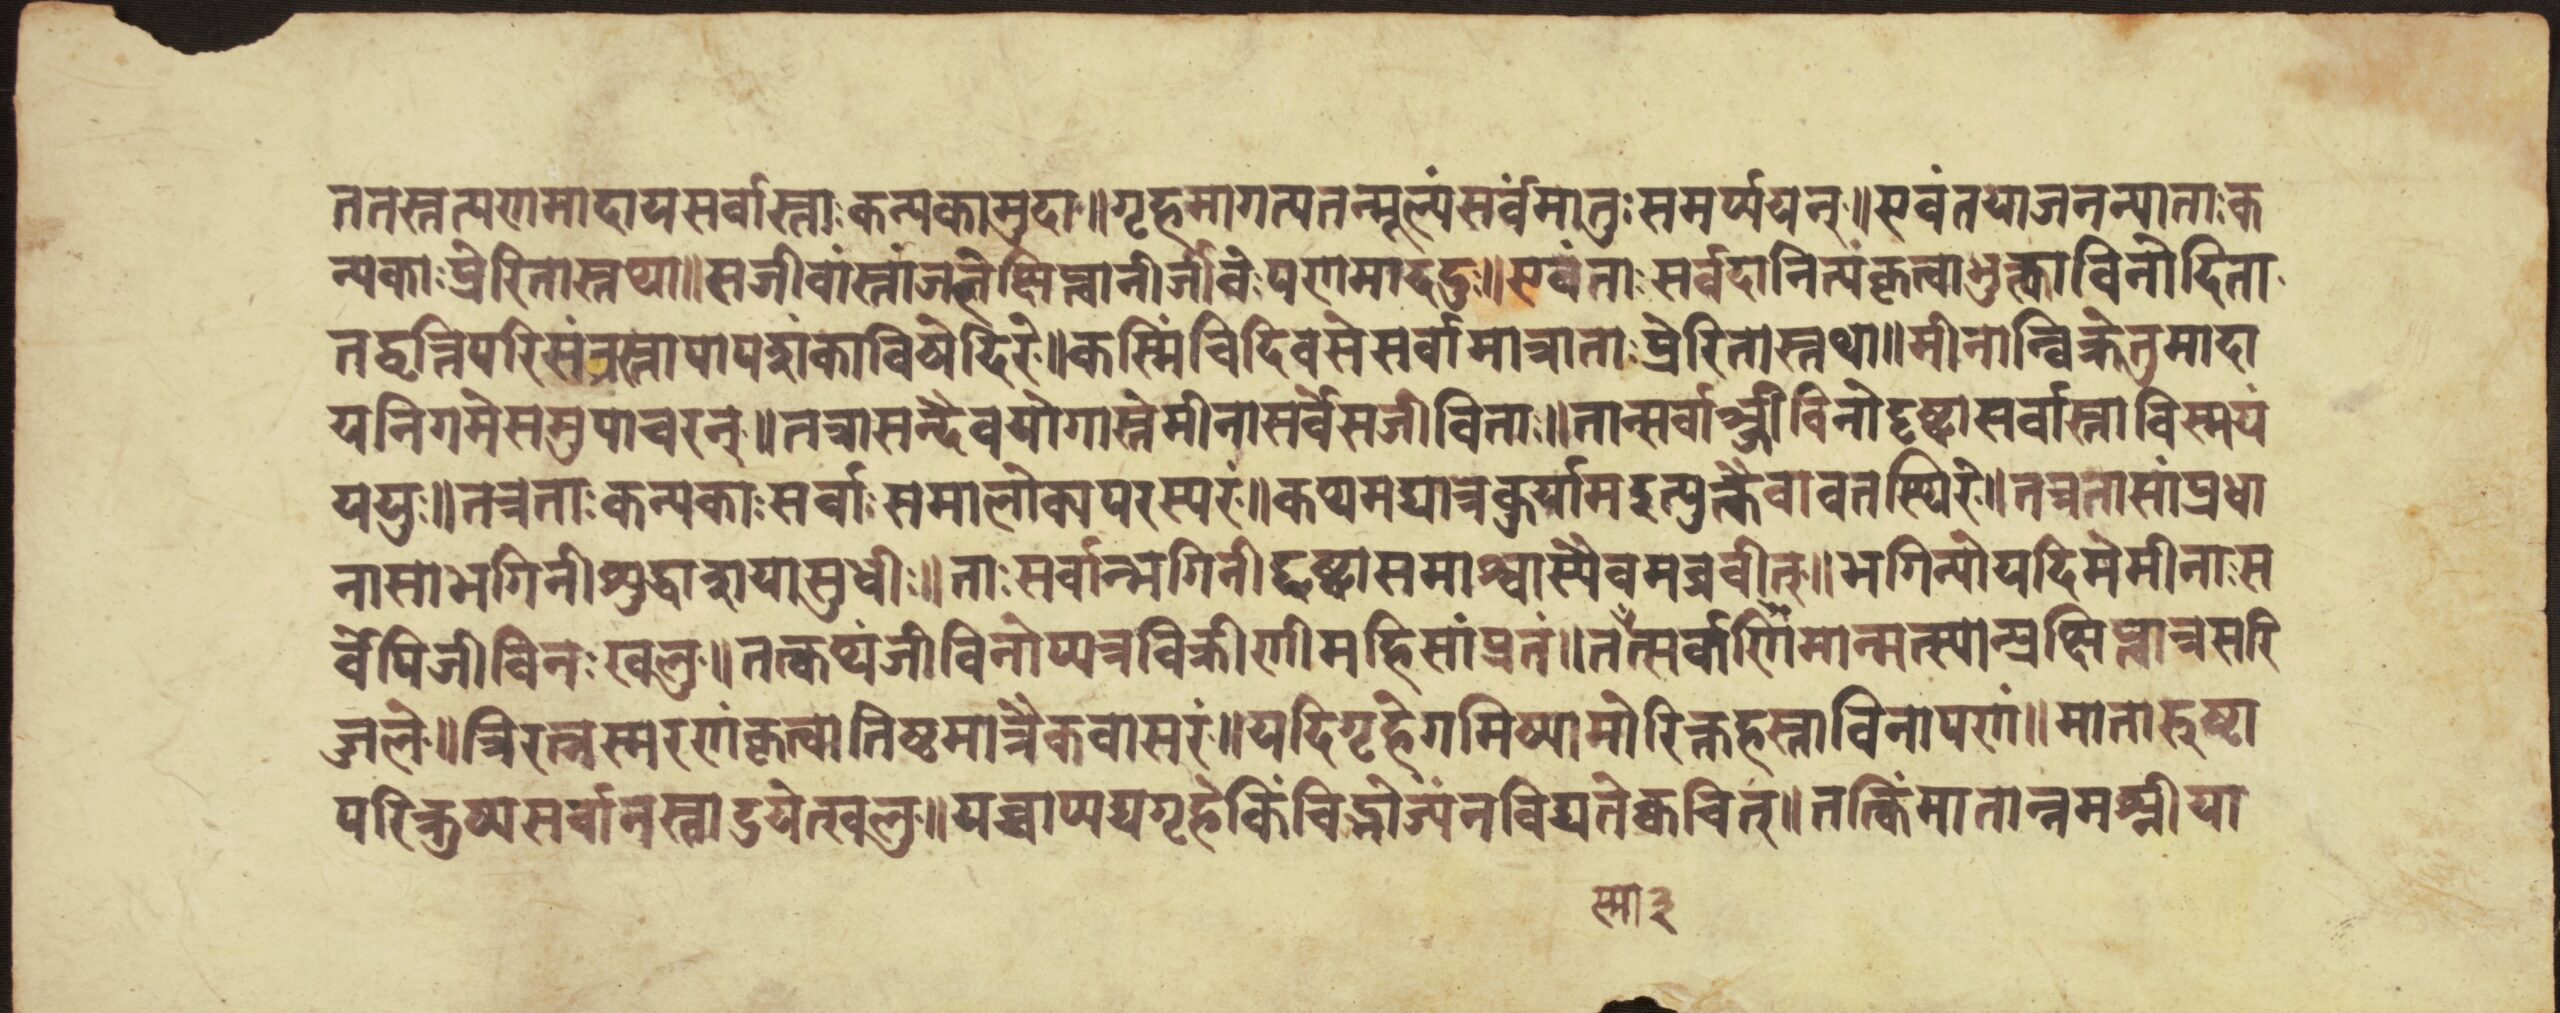 ततस्तत्पणमादायसर्वास्ताःकन्यकामुदा॥गृहमागत्यतन्मूल्यंसर्वंमातुःसमर्प्पयन्॥एवंतयाजनन्याताःक
न्यकाःप्रेरितास्तथा॥सजीवांस्तांजलेक्षिप्त्वानीर्जीवैःपणमाददुः॥एवंताःसर्वदानित्यंकृत्वाभुक्त्वाविनोदिताः
तद्वृत्तिपरिसंत्रस्तापापशंकाविषेदिरे॥कस्मिंचिदिवसेसर्वामात्राताःप्रेरितास्तथा॥मीनान्विक्रेतुमादा
यनिगमेसमुपाचरन्॥तत्रासन्दैवयोगास्तेमीनासर्वेसजीविताः॥तान्सर्वाञ्जीविनोदृष्ट्वासर्वास्ताविस्मयं
ययुः॥तत्रताःकन्यकाःसर्वाःसमालोक्यपरस्परं॥कथमद्यात्रकुर्यामइत्युक्त्वैवावतस्थिरे॥तत्रतासांप्रधा
नासाभगिनीशुद्धाशयासुधीः॥ताःसर्वान्भगिनीदृष्ट्वासमाश्वास्यैवमब्रवीत्॥भगिन्योयदिमेमीनाःस
र्वेपिजीविनःखलु॥तत्कथंजीविनोप्यत्रविक्रीणीमहिसांप्रतं॥तत्सर्वाणिमान्मत्स्यान्प्रक्षिप्त्वात्रसरि
ज्जले॥त्रिरत्नस्मरणंकृत्वातिष्ठमात्रैकवासरं॥यदिगृहेगमिष्यामोरिक्तहस्ताविनापणं॥मातारुष्टा
परिक्रुष्यसर्वानस्त्वाडयेत्खलु॥यच्चाप्यद्यगृहेकिंचिद्भोज्यंनविद्यतेक्वचित्॥तत्किंमातान्नमश्नीया
स्मा३